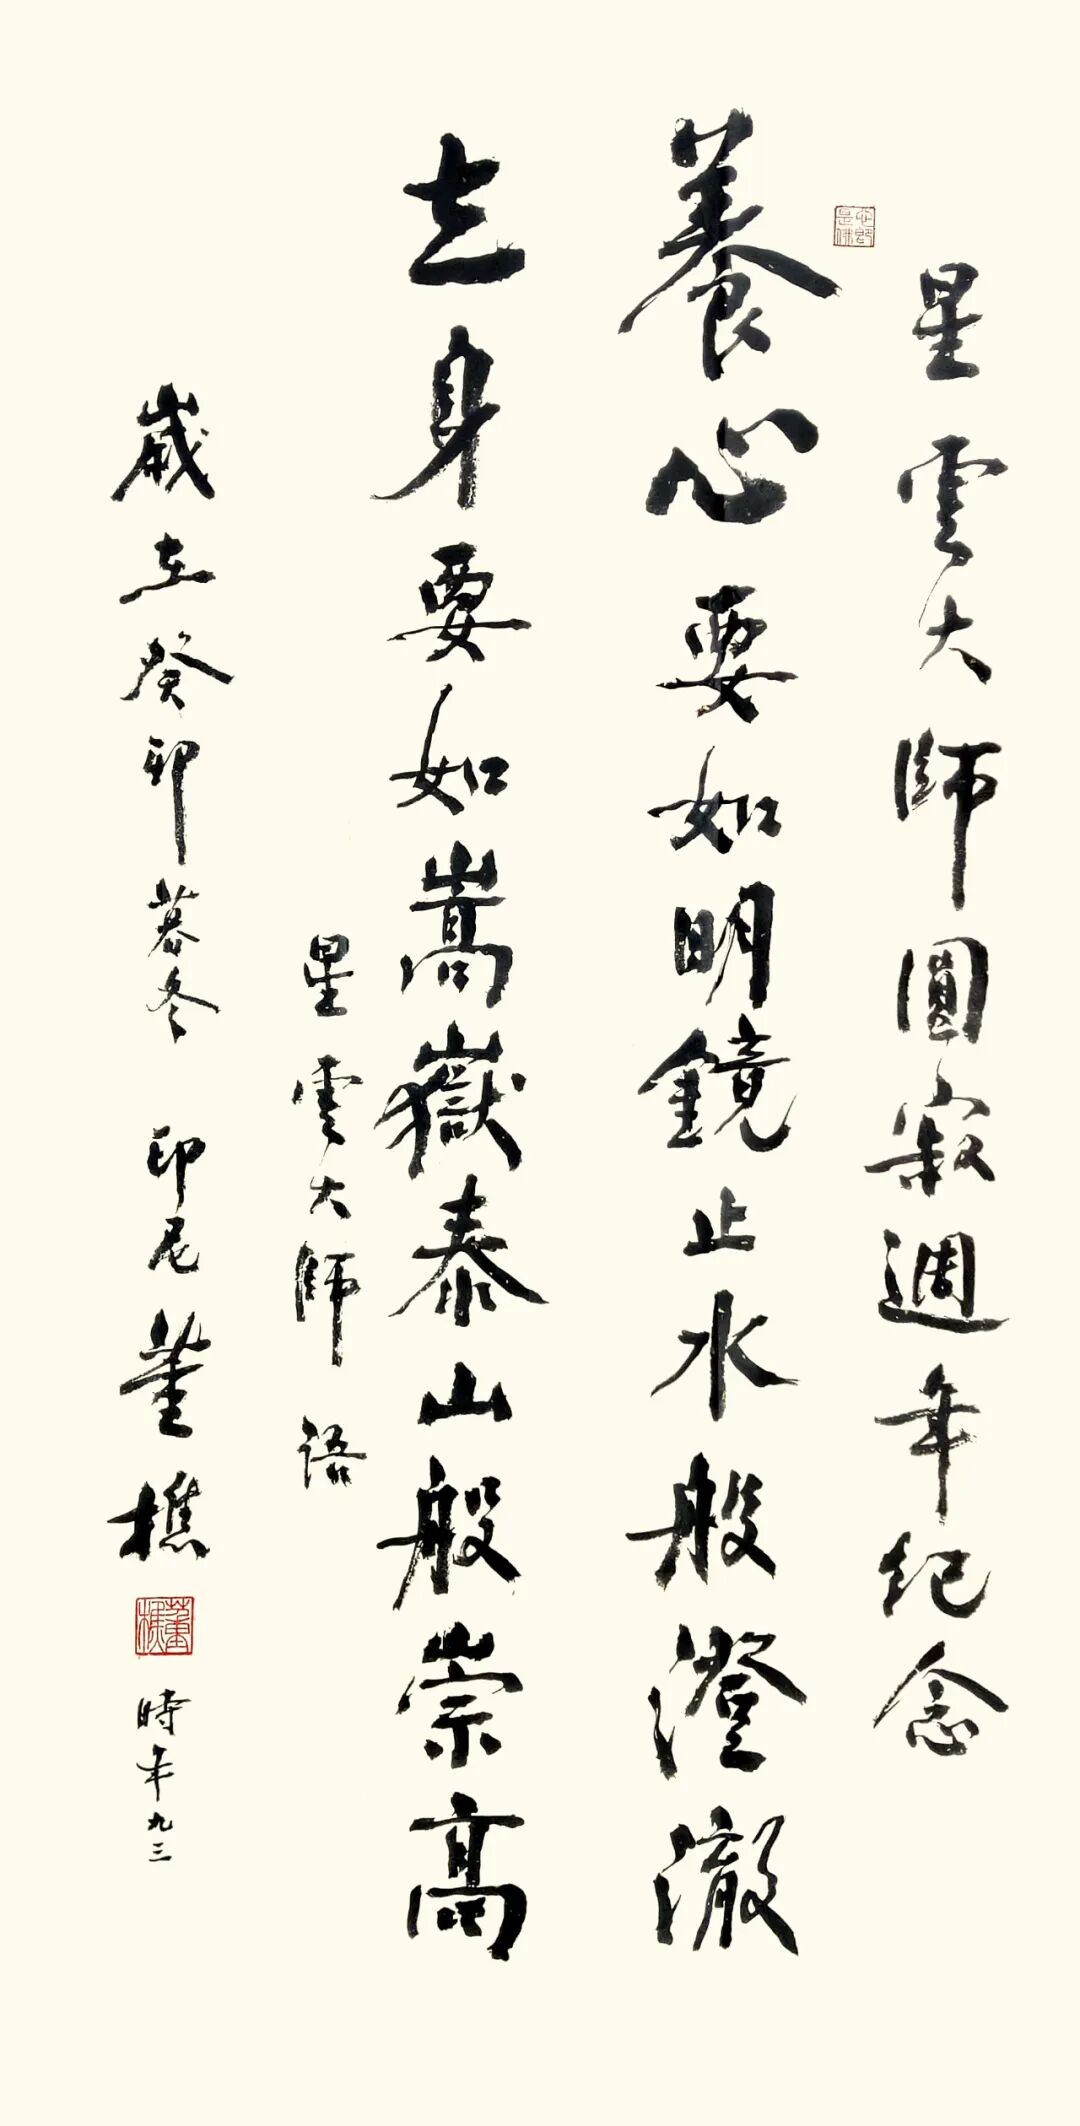 星雲大師圓寂週年紀念
心即是佛
養心要如明鏡止水般澄澈
立身要如嵩嶽泰山般崇高
星雲大師語
歲在癸卯暮冬 印尼董樵
董樵
時年九三